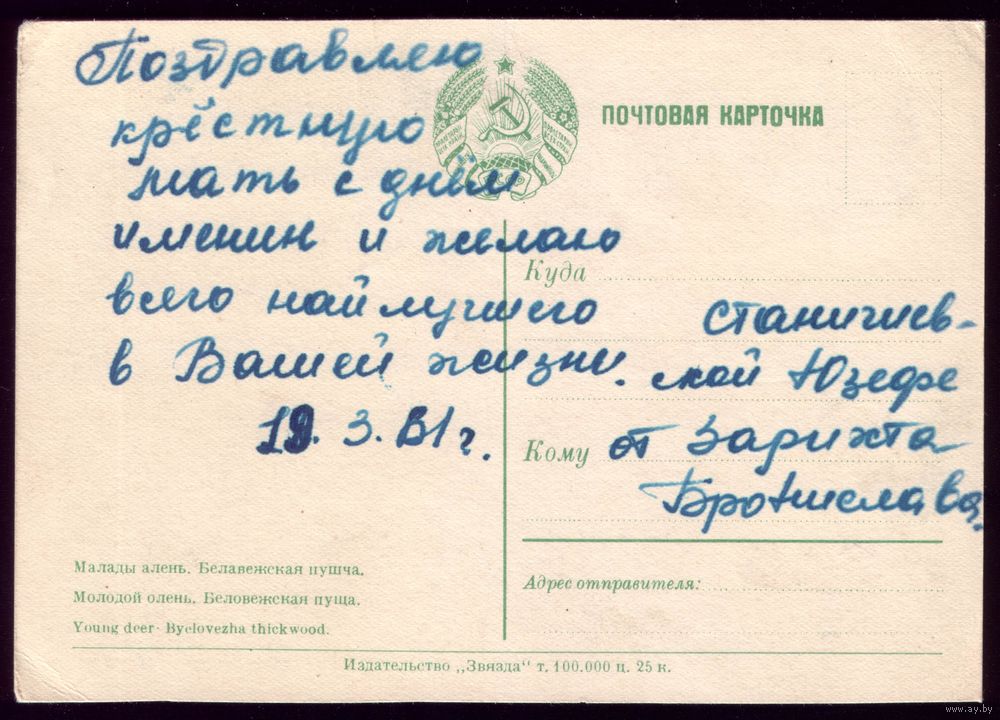 Поздравляю
крёстную
мать с днём
именин и желаю
всего найлучшего
в Вашей жизни.
19. 3. 61 г.
ПОЧТОВАЯ КАРТОЧКА
БССР
Куда
Станичиев-
ской Юзефе
Кому от Зарихта
Бронислава.
Адрес отправителя:
Малады алень. Белавежская пушча.
Молодой олень. Беловежская пуща.
Young deer· Byelovezha thickwood.
Издательство „Звязда" т. 100.000 ц. 25 к.
www.ay.by